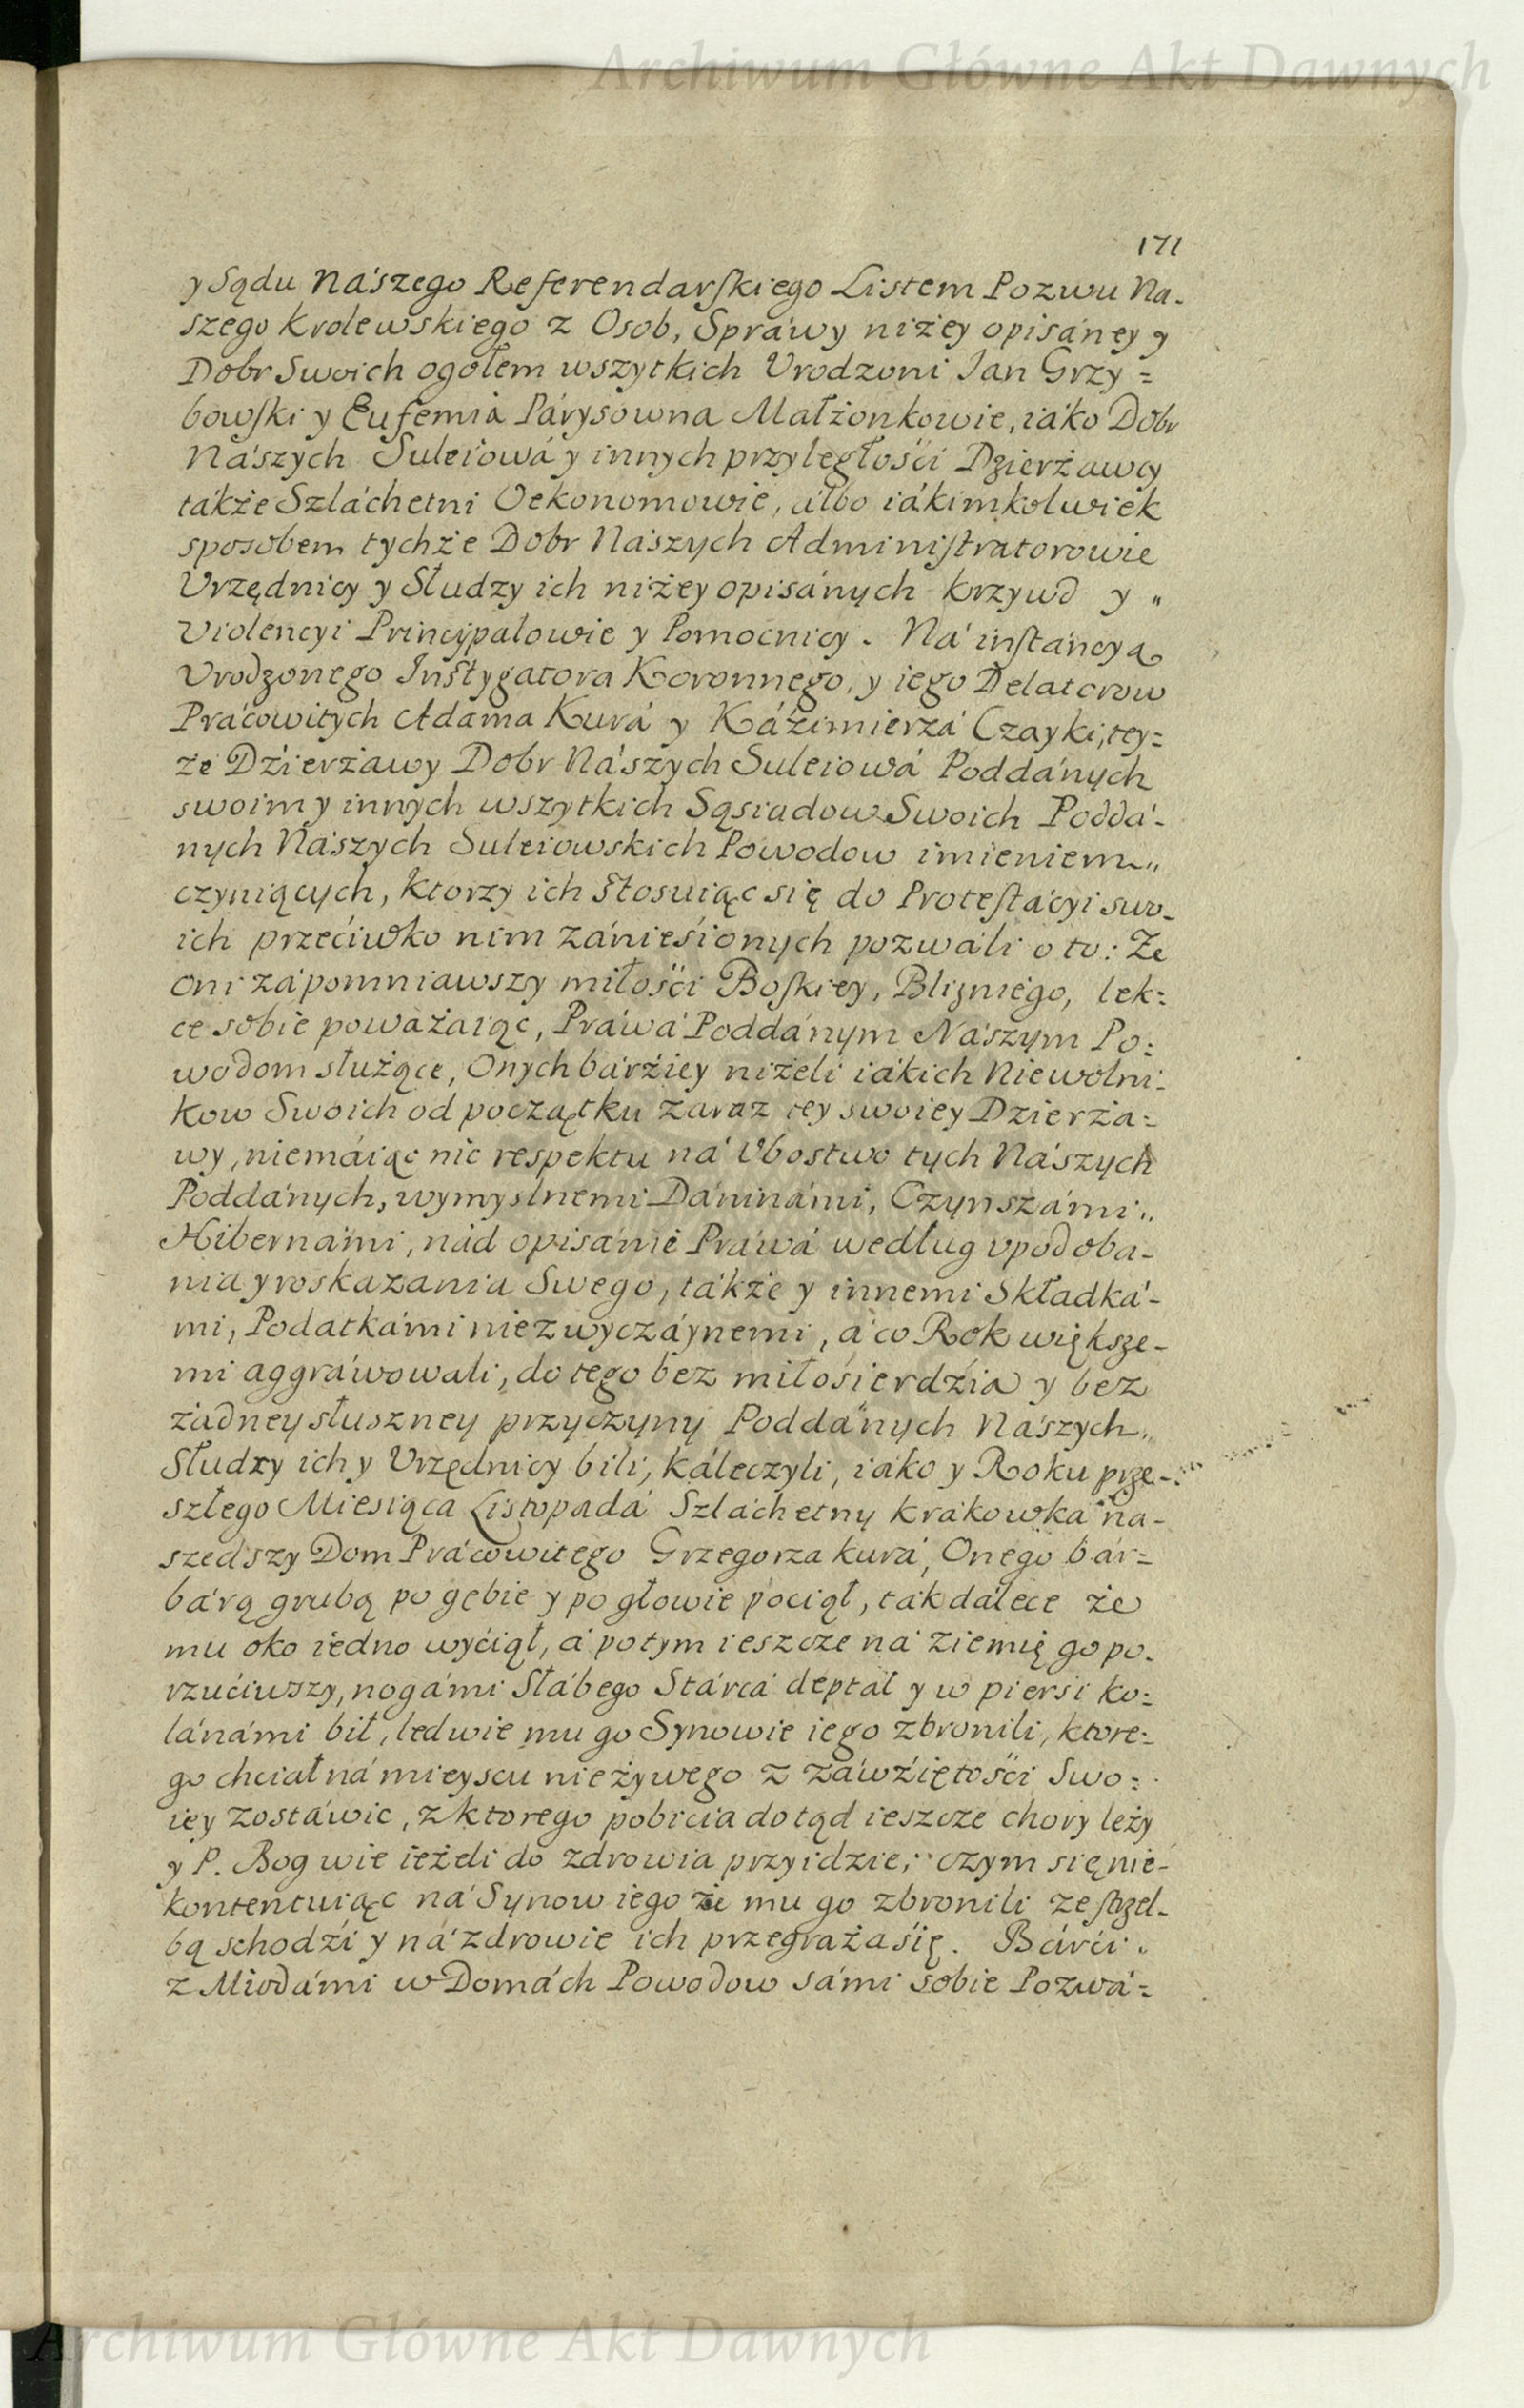 Archiwum Główne Akt Dawnych
171
y Sądu Nászego Referendarſkiego Listem Pozwu Na-
szego Krolewskiego z Osob, Spráwy niżey opisáney y
Dobr Swoich ogołem wszytkich Vrodzoni Jan Grzy=
bowſki y Eufemia Párysowna Małżonkowie, iáko Dobr
Nászych Suleiowá y innych przyległośći Dzierżawcy
tákże Szláchetni Oekonomowie, álbo iákimkolwiek
sposobem tychże Dobr Nászych Adminiſtratorowie
Vrzędnicy y Słudzy ich niżey opisánych krzywd y "
Violencyi Princypałowie y Pomocnicy. Ná inſtáncyą
Vrodzonego Inſtygatora Koronnego, y iego Delatorow
Prácowitych Adama Kurá y Káźimierzá Czayki, tey=
że Dźierżawy Dobr Nászych Suleiowá Poddánych
swoim y innych wszytkich Sąsiadow Swoich Poddá-
nych Nászych Suleiowskich Powodow imieniem "
czyniących, ktorzy ich stosuiąc się do Proteſtácyi swo-
ich przećiwko nim zánieśionych pozwáli o to: Że
oni zápomniawszy miłośći Boſkiey, Blizniego, lek=
ce sobie poważaiąc, Práwá Poddánym Nászym Po=
wodom służące, Onych bárźiey niżeli iákich Niewolni-
kow Swoich od początku zaraz tey swoiey Dzierża=
wy, niemáiąc nic respektu ná Vbostwo tych Nászych
Poddánych, wymyslnemi Dáninámi, Czynszámi "
Hibernámi, nád opisánie Práwá według vpodoba-
nia y roskazania Swego, tákże y innemi Składká-
mi, Podatkámi niezwyczáynemi, á co Rok większe-
mi aggráwowali, do tego bez miłośierdźia y bez
żadney słuszney przyczyny Poddánych Nászych "
Słudzy ich y Vrzędnicy bili, káleczyli, iáko y Roku prze-
szłego Miesiąca Listopadá Szláchetny Krákowká na-
szedszy Dom Prácowitego Grzegorza Kurá, Onego bár=
bárą grubą po gębie y po głowie pociął, ták dálece że
mu oko iedno wyćiął, á potym ieszcze ná ziemię go po-
rzućiwszy, nogámi Słábego Stárcá deptał y w piersi ko=
lánámi bił, ledwie mu go Synowie iego zbronili, ktore=
go chciał ná mieyscu nieżywego z záwźiętośći Swo=
iey zostáwic, z ktorego pobicia dotąd ieszcze chory leży
y P. Bog wie ieżeli do zdrowia przyidzie, czym się nie-
kontentuiąc ná Synow iego że mu go zbronili ze ſtrzel-
bą schodźi y ná zdrowie ich przegraża śię. Bárći "
z Miodámi w Domách Powodow sámi sobie Pozwá=
Archiwum Główne Akt Dawnych